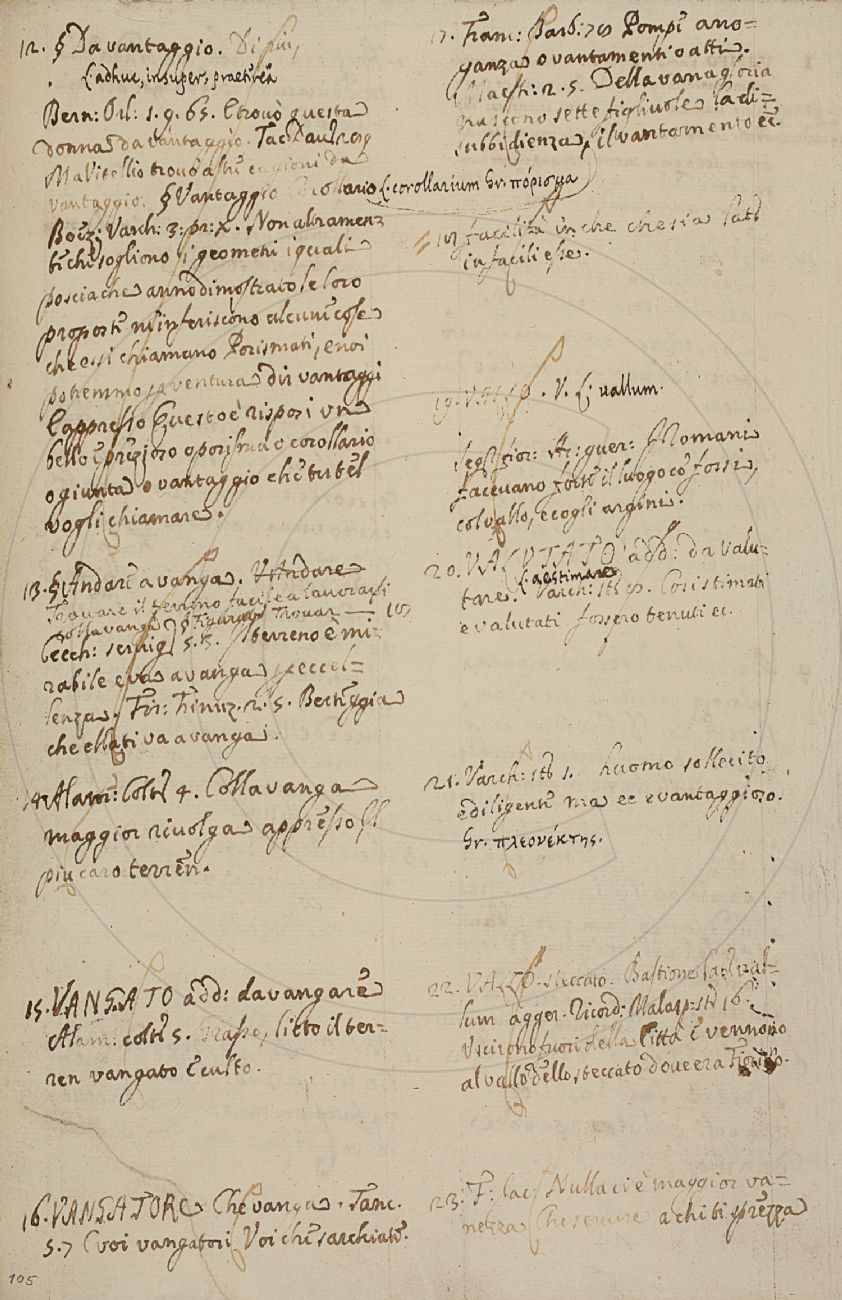 12. § Da vantaggio. Di più,
L: adhuc, insuper, praeterea
Bern: Orl: 1. 9. 65. E trovò questa
donna da vantaggio. Tac: Dav:
Ma Vitellio trovò altre cagioni da
vantaggio. § Vantaggio Corollario L: corollarium Gr: πόρισμα
Boez: Varch: 3: pr: X. Non altramenti
che sogliono i geometri i quali
poscia che anno dimostrato le loro
proposte n'inferiscono alcune cose
che essi chiamano Porismati, e noi
potremmo per ventura dir vantaggi
E appresso E questo è risposi un
bello e prezioso o porisma o corollario
o giunta o vantaggio che tu tel
vogli chiamare.
13. § Andare a vanga. Andare
Trovare il terreno facile a lavorarsi
colla vanga § Figurat: Trovar — 18
Cecch: servig: 5. 3. Il terreno è mi=
rabile e va a vanga per eccel=
lenza. Fir: Trinuz. 2. 5. Bertuccia
che ella ti va a vanga.
14. Alam: Colt: 4. Colla vanga
maggior rivolga appresso Il
più caro terren.
15. VANGATO add: da vangare
Alam: colt: 5. Grasso, lieto il ter=
ren vangato e culto.
16. VANGATORE Che vanga. Tanc.
5. 7 E voi vangatori, Voi che sarchiate.
105
17. Franc: Barb: Pompe arro=
ganza o vantamenti o atti.
Maestr: 2. 5. Della vanagloria
nascono sette figliuole la di=
subbidienza, il vantamento ec.
18 facilità in che che sia
in facili esse.
19. VALLO. V. L: vallum.
Segr: Fior: Ar: guer: I Romani
facevano forte il luogo co' fossi,
col vallo, e cogli argini.
20. VALUTATO add: da valu=
L: aestimare
tare. Varch: st: Così stimati
e valutati fossero tenuti ec.
21. Varch: st: 1. huomo sollecito
e diligente ma ec e vantaggioso.
Gr: πλεονέκτης.
22. VALLO. steccato. Bastione Lat: val=
lum agger. Ricord: Malasp: st: 16.
Uscirono fuori della Città e vennono
al vallo dello steccato dove era Fiorino.
23. Nulla ci è maggior va=
nezza Che servire a chi ti sprezza